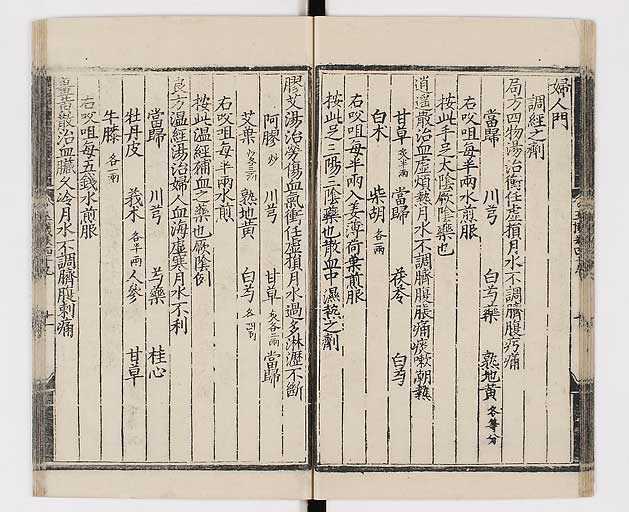 婦人門
調經之劑
局方四物湯治衝任虛損月水不調臍腹㽲痛
當歸 川芎 白芍藥 熟地黃各等分
右㕮咀每半兩水煎服
按此手足太陰厥陰藥也
逍遥散治血虛煩熱月水不調臍腹脹痛痰嗽潮熱
甘草炙半兩 當歸 茯苓 白芍
白朮 柴胡各一兩
右㕮咀每半兩入姜薄荷葉煎服
按此足三陽三陰藥也散血中濕熱之劑
膠艾湯治勞傷血氣衝任虛損月水過多淋瀝不斷
阿膠炒 川芎 甘草炙各二兩 當歸
艾葉各三兩 熟地黃 白芍各四兩
右㕮咀每半兩水煎
按此温經補血之藥也厥陰例
良方温經湯治婦人血海虛寒月水不利
當歸 川芎 芍藥 桂心
牡丹皮 莪朮各半兩 人參 甘草
牛膝各一兩
右㕮咀每五錢水煎服
薑黃散治血臟久冷月水不調臍腹刺痛